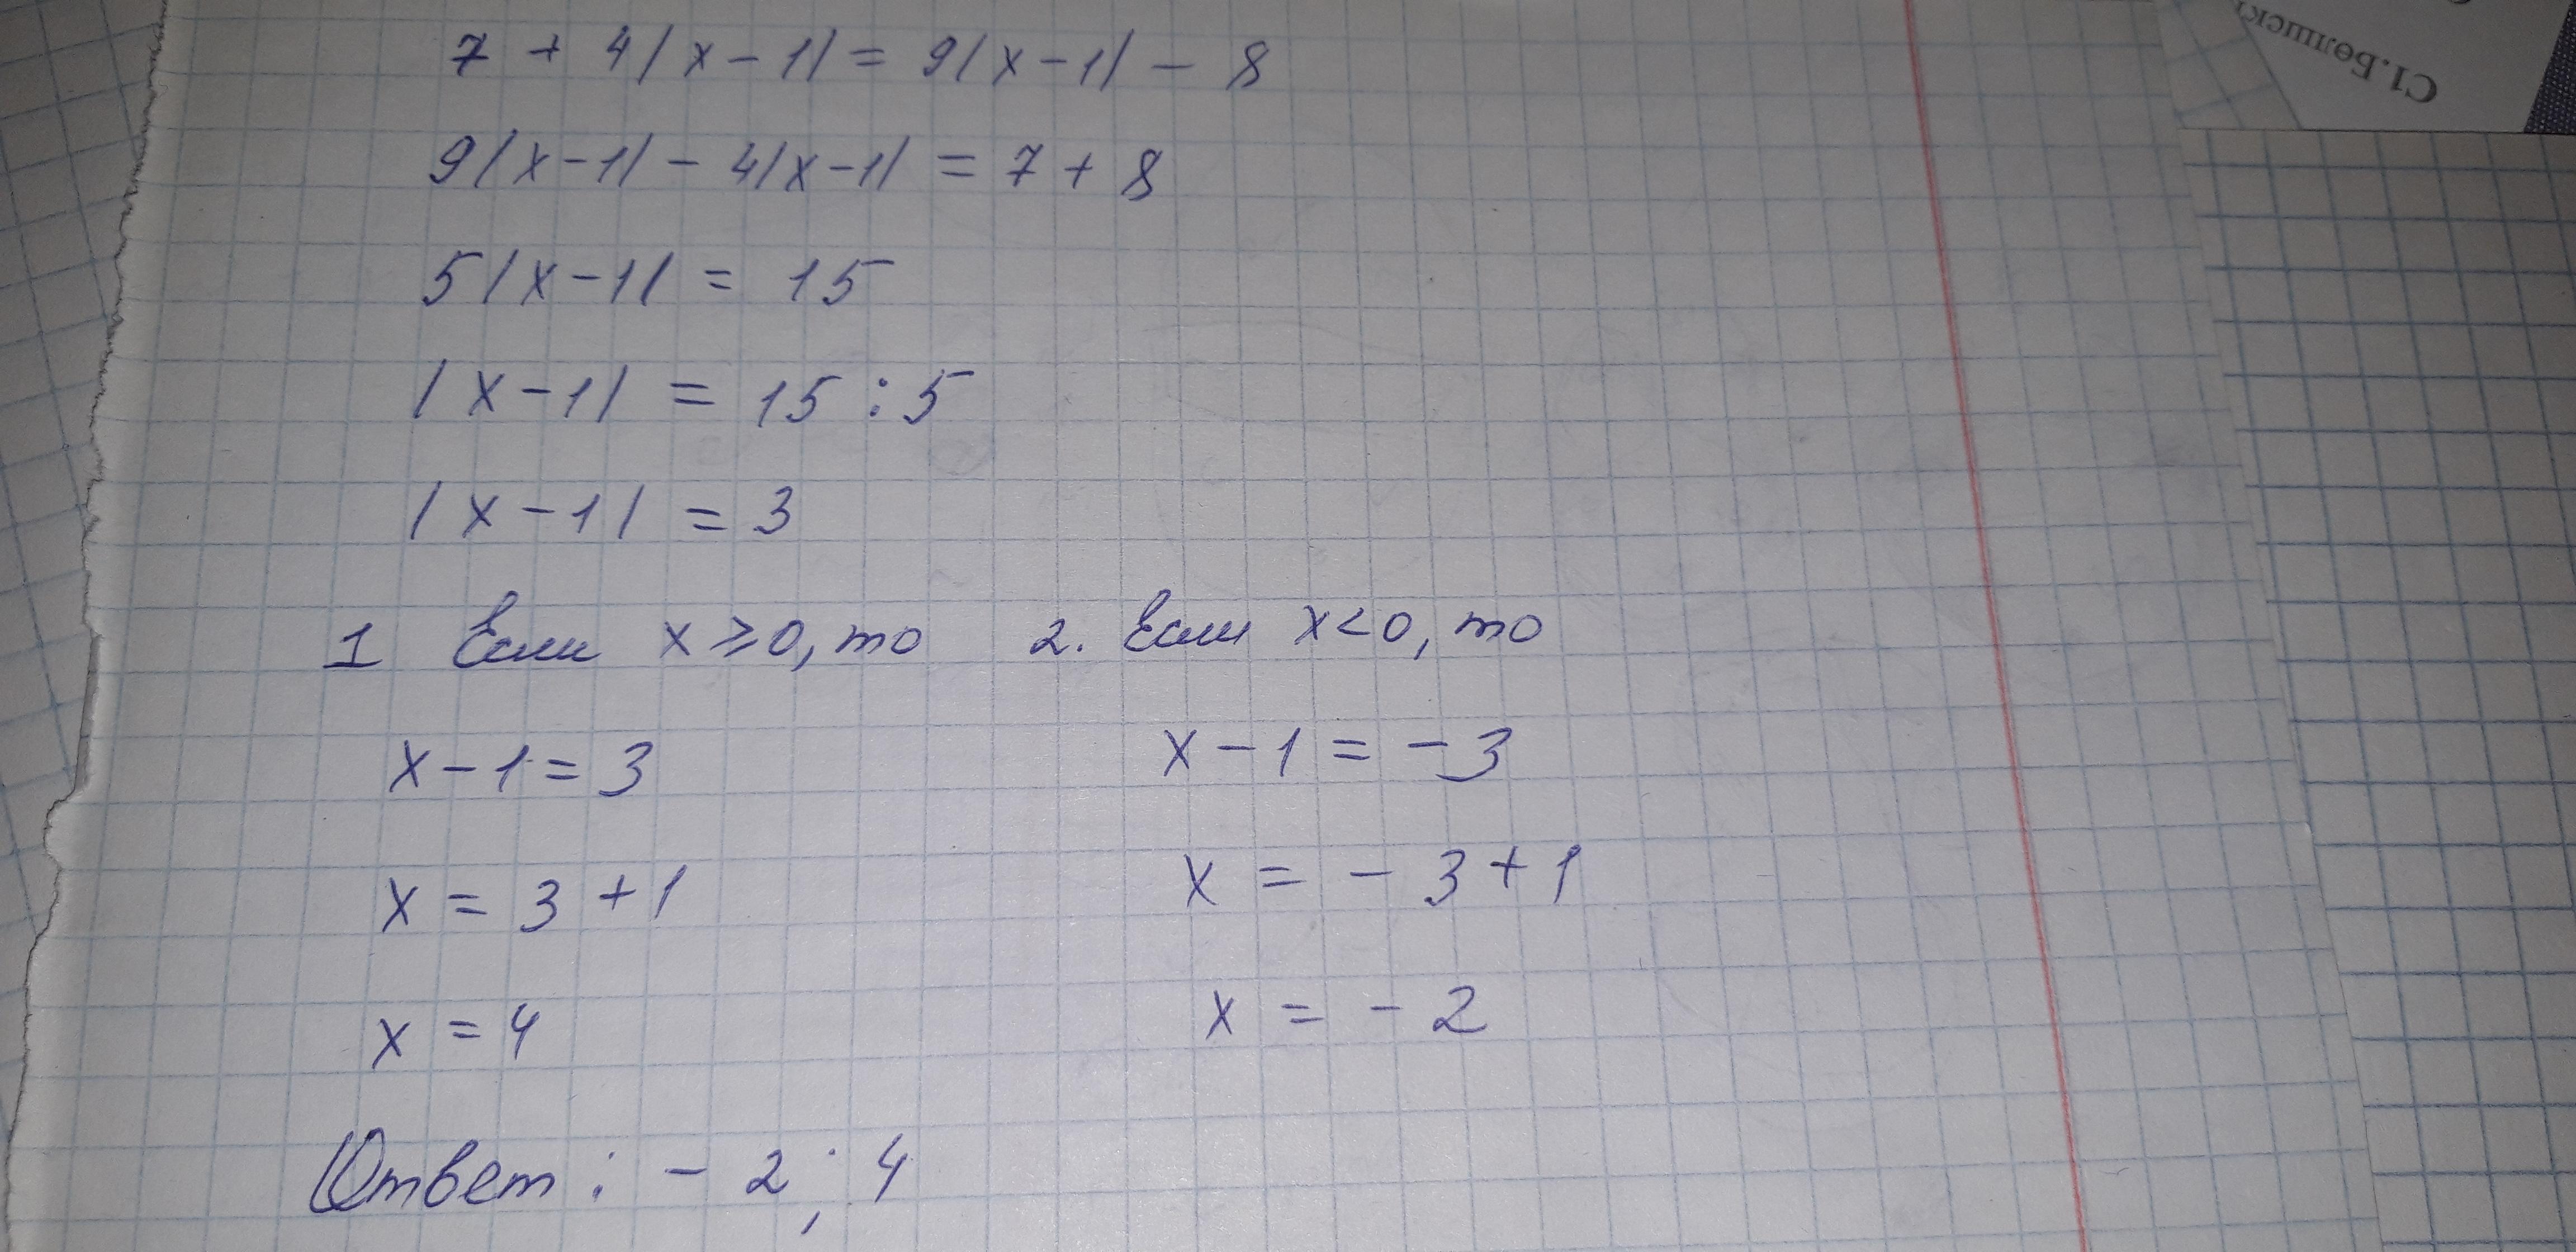 С1.Бөлшект
7 + 4|x - 1| = 9|x - 1| - 8
9|x - 1| - 4|x - 1| = 7 + 8
5|x - 1| = 15
|x - 1| = 15 : 5
|x - 1| = 3
1 Если x ⩾ 0, то
x - 1 = 3
x = 3 + 1
x = 4
2. Если x < 0, то
x - 1 = - 3
x = - 3 + 1
x = - 2
Ответ : - 2 ; 4